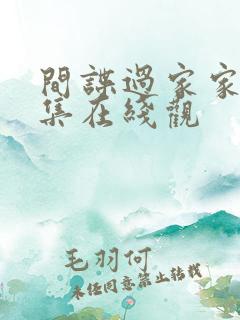 間諜過家家
集在綫觀
毛羽何
未经同意禁止转载